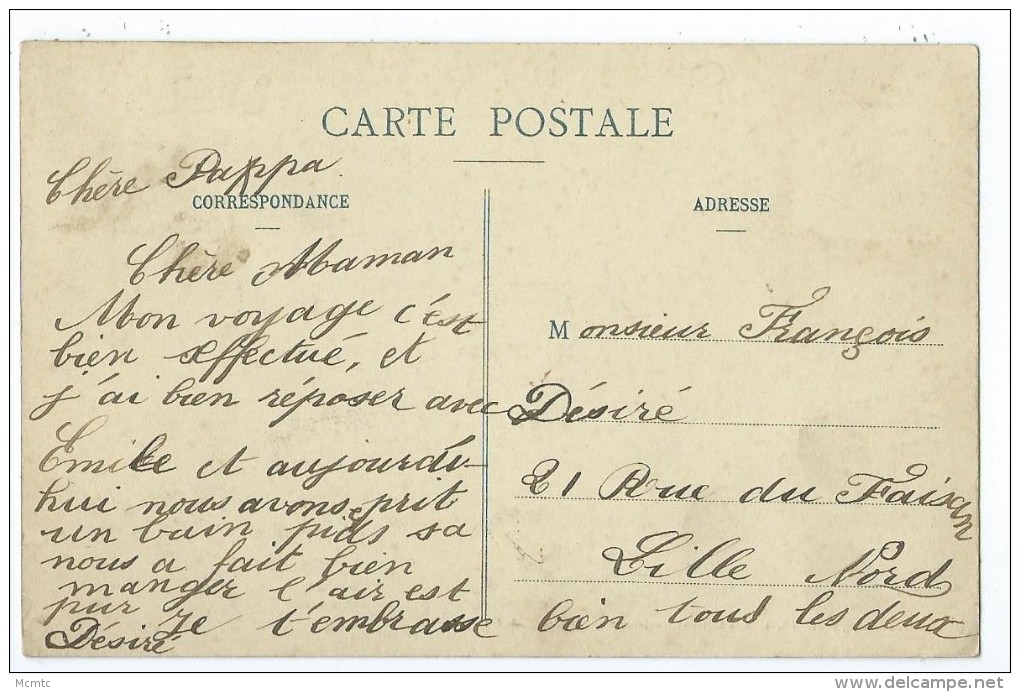 CARTE POSTALE
Chère Pappa
CORRESPONDANCE
Chère Maman
Mon voyage c'est
bien effectué, et
j'ai bien réposer avec
Emile et aujourdu-
hui nous avons prit
un bain pieds sa
nous a fait bien
manger l'air est
pur je t'embrasse bien tous les deux
Désiré
ADRESSE
Monsieur François
Désiré
21 Rue du Faisan
Lille Nord
Mcmtc
delcampe.net